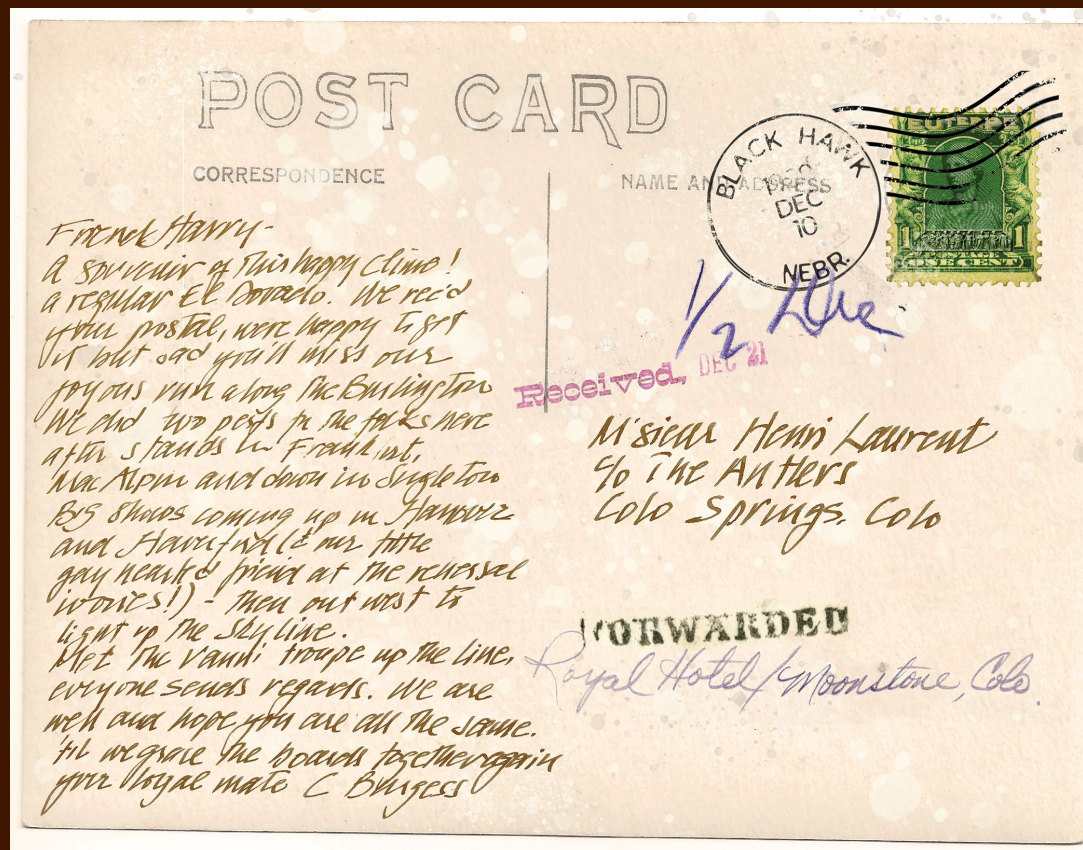 POST CARD
CORRESPONDENCE
NAME AND ADDRESS
BLACK HAWK
DEC
10
NEBR.
1 1
ONE CENT
1/2 Due
Received, DEC 21
Friend Harry-
A souvenir of this happy clime!
a regular El Dorado. We rec'd
your postal, were happy to get
it but sad you'll miss our
joyous run along the Burlington
We did two perfs for the folks here
after stands in
MacAlpin and down in Singleton
Big shows coming up in Hanover
and (& our little
gay heart'd friend at the rehersal
ivories!) - then out west to
light up the skyline.
Met the Vandi troupe up the line,
everyone sends regards. We are
well and hope you are all the same.
'til we grace the boards together again
your loyal mate C Burgess
M'sieur Henri Laurent
c/o The Antlers
Colo Springs. Colo
FORWARDED
Royal Hotel/Moonstone, Colo.